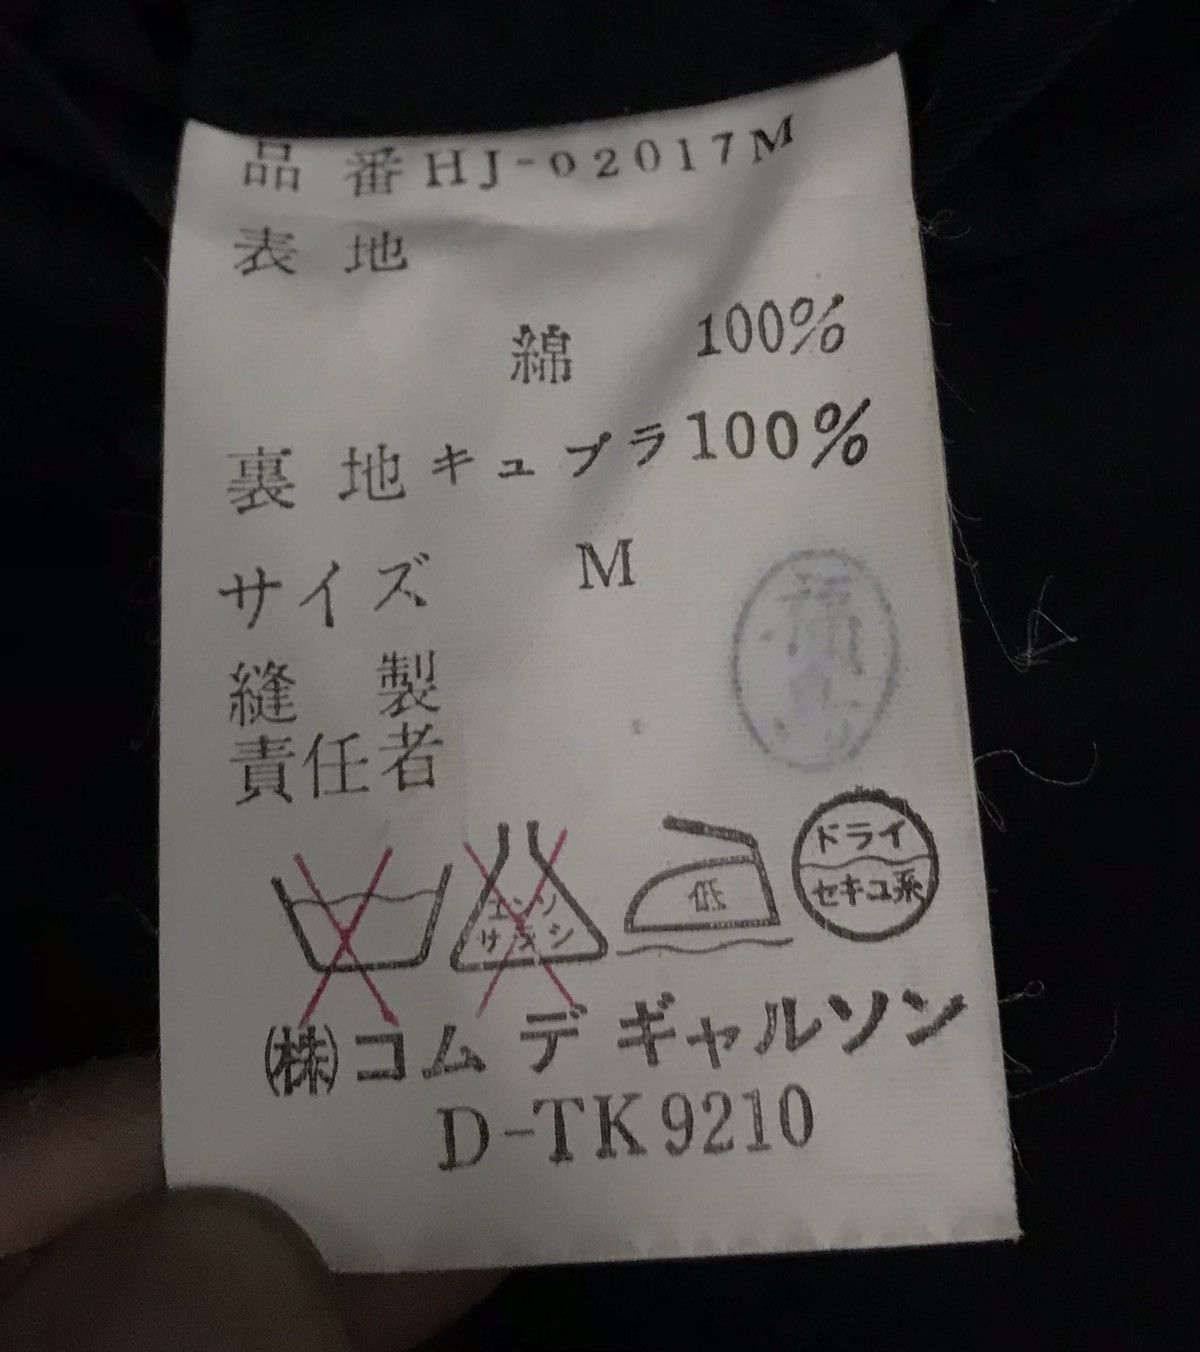 品 番 HJ-02017M
表 地
綿 100%
裏 地 キュプラ 100%
サイズ M
縫 製
責任者
エンソ
サラシ
低
ドライ
セキユ系
(株)コム デ ギャルソン
D-TK9210